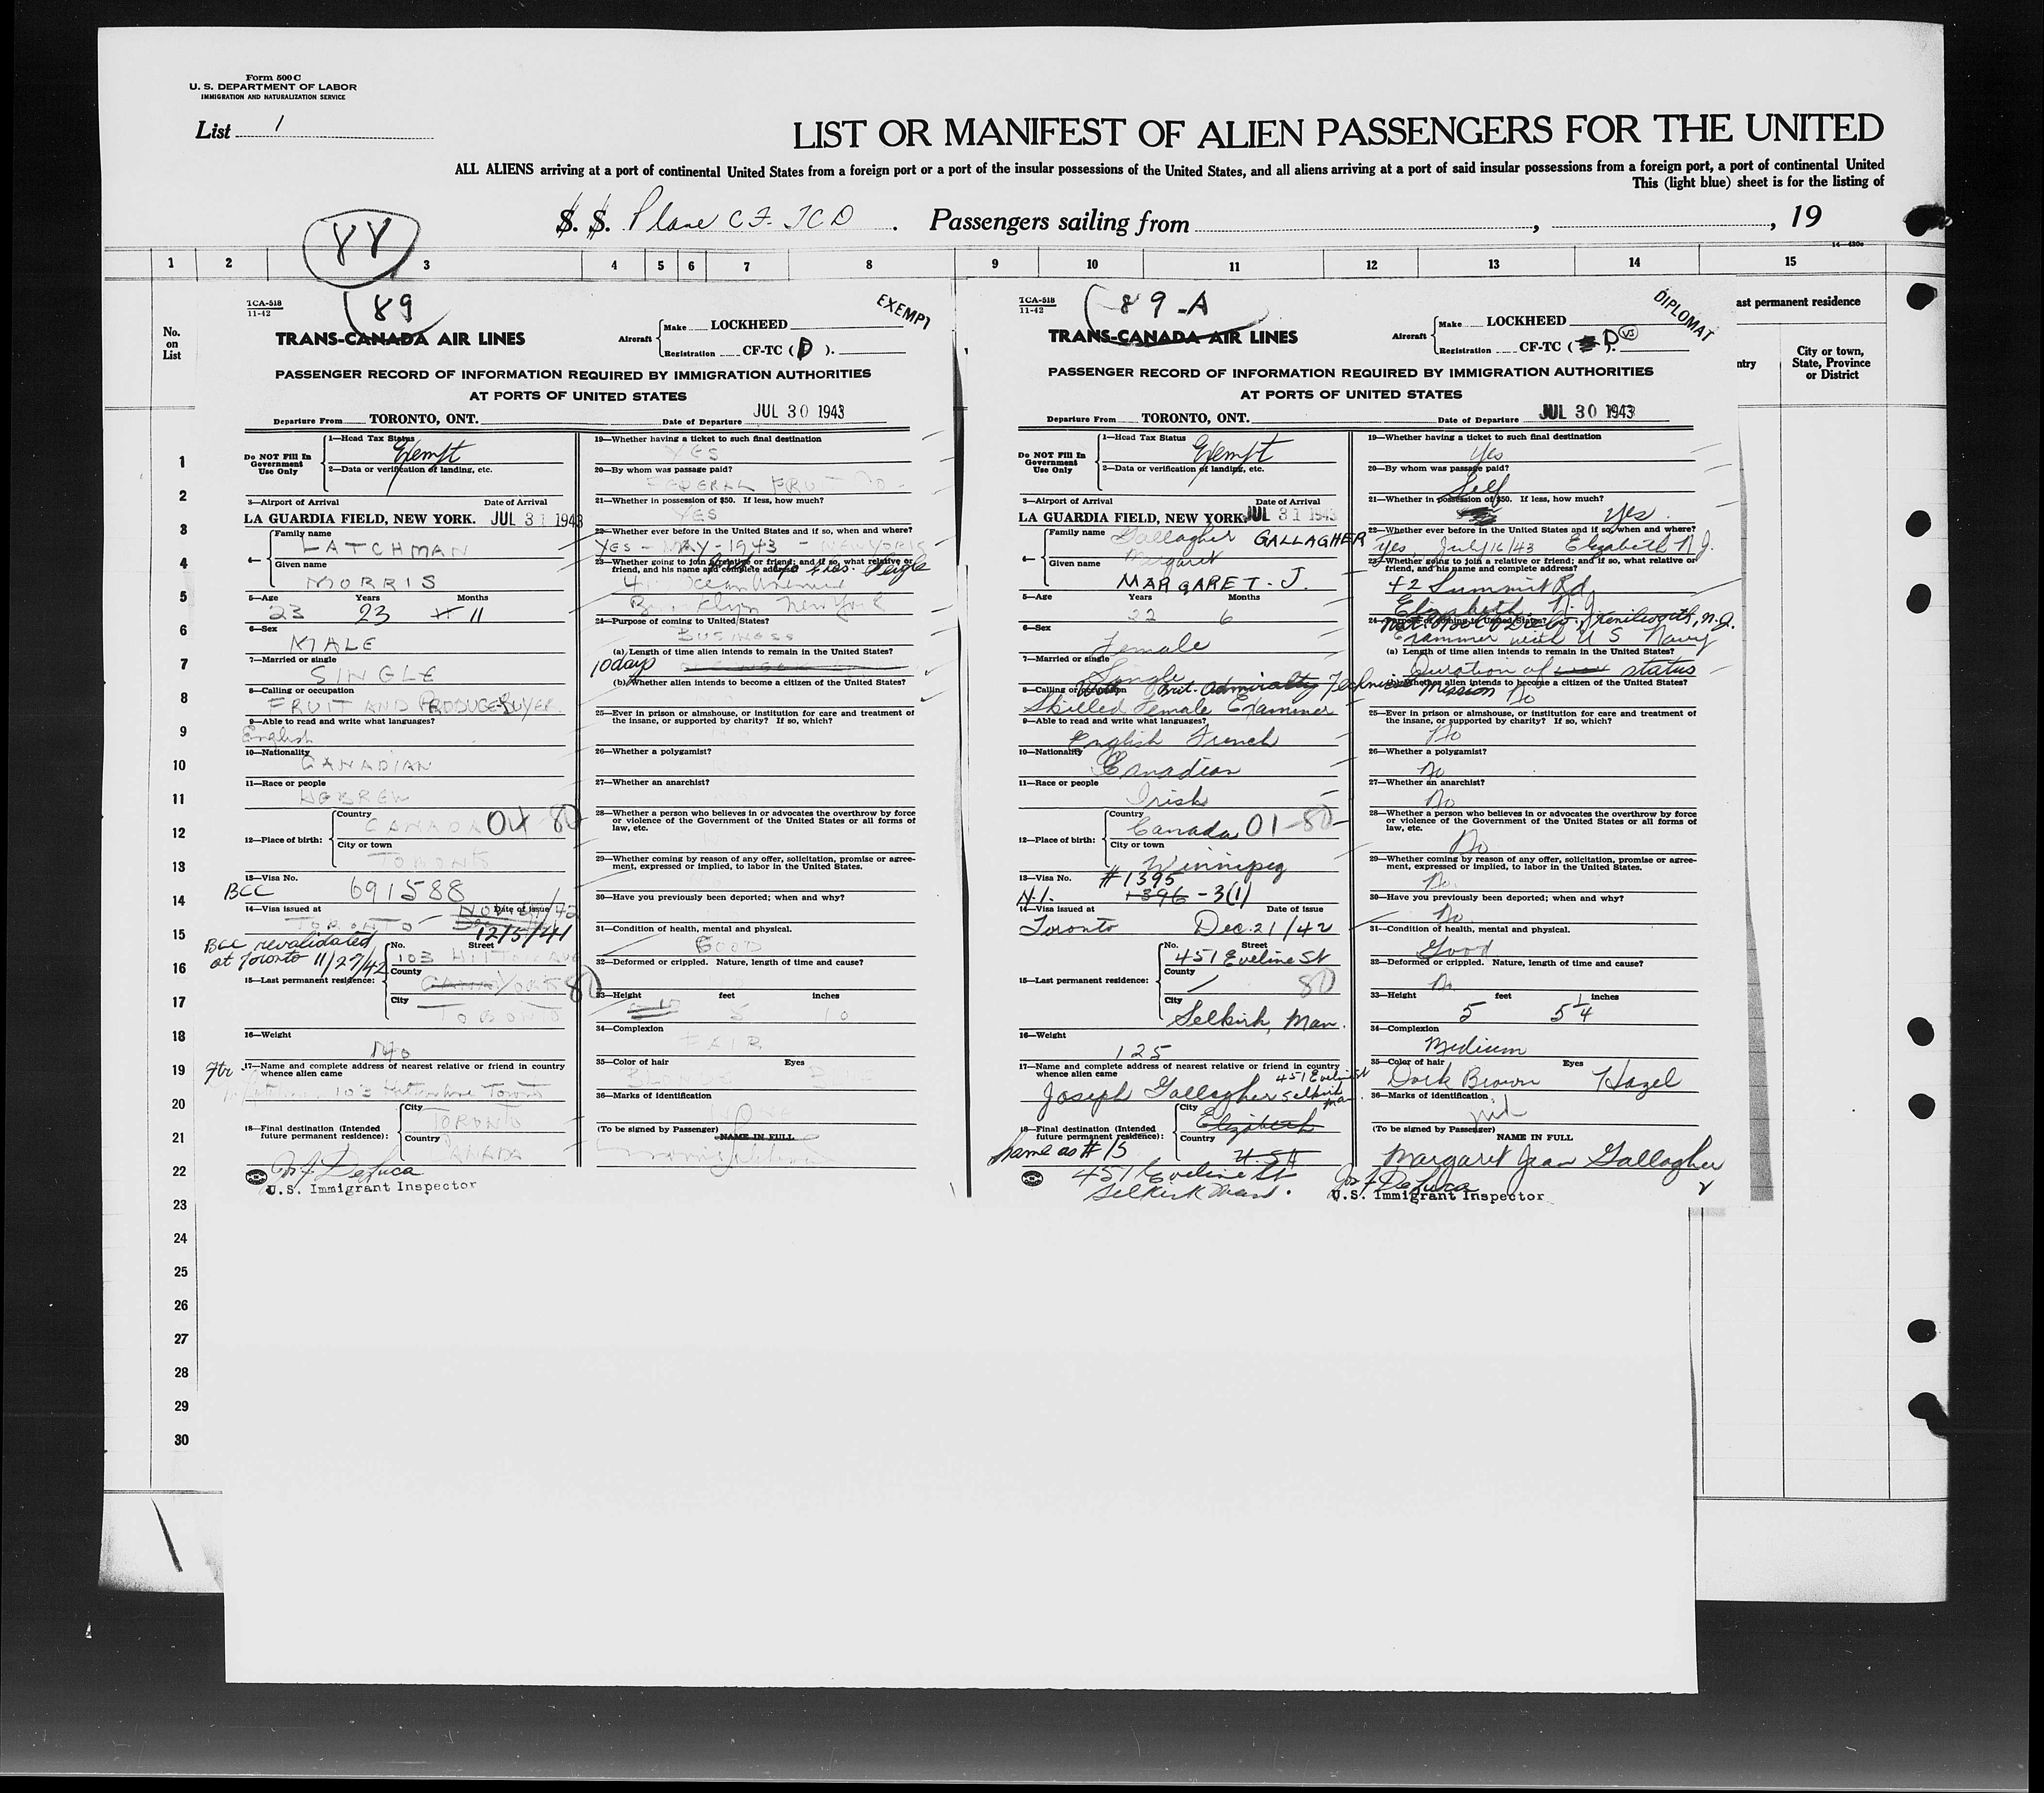 Form 500 C
U. S. DEPARTMENT OF LABOR
IMMIGRATION AND NATURALIZATION SERVICE
List 1
LIST OR MANIFEST OF ALIEN PASSENGERS FOR THE UNITED
ALL ALIENS arriving at a port of continental United States from a foreign port or a port of the insular possessions of the United States, and all aliens arriving at a port of said insular possessions from a foreign port, a port of continental United
This (light blue) sheet is for the listing of
S. S. Plane CF-TCD . Passengers sailing from , , 19
88
1 2 3 4 5 6 7 8 9 10 11 12 13 14 15
No. on List
ast permanent residence
ntry
City or town, State, Province or District
1
2
3
4
5
6
7
8
9
10
11
12
13
14
15
16
17
18
19
20
21
22
23
24
25
26
27
28
29
30
TCA-518
11-42
89
EXEMPT
TRANS-CANADA AIR LINES
Aircraft Make LOCKHEED
Registration CF-TC ( D ).
PASSENGER RECORD OF INFORMATION REQUIRED BY IMMIGRATION AUTHORITIES
AT PORTS OF UNITED STATES
Departure From TORONTO, ONT. Date of Departure JUL 30 1943
Do NOT Fill In Government Use Only
1—Head Tax Status
Exempt
2—Data or verification of landing, etc.
3—Airport of Arrival Date of Arrival
LA GUARDIA FIELD, NEW YORK. JUL 31 1943
4— Family name
LATCHMAN
Given name
MORRIS
5—Age Years Months
23 23 11
6—Sex
MALE
7—Married or single
SINGLE
8—Calling or occupation
FRUIT AND PRODUCE BUYER
9—Able to read and write what languages?
English
10—Nationality
CANADIAN
11—Race or people
HEBREW
12—Place of birth: Country
CANADA 04 80
City or town
TORONTO
13—Visa No.
BCC 691588
14—Visa issued at Date of issue
TORONTO
12/5/41
BCC revalidated
at Toronto 11/27/42
15—Last permanent residence: No. Street
103
County
YORK 80
City
TORONTO
16—Weight
140
17—Name and complete address of nearest relative or friend in country whence alien came
Ftr.
103 Toronto
18—Final destination (Intended future permanent residence): City
TORONTO
Country
CANADA
Jos. F. DeLuca
U.S. Immigrant Inspector
19—Whether having a ticket to such final destination
YES
20—By whom was passage paid?
FEDERAL FRUIT CO.
21—Whether in possession of $50. If less, how much?
YES
22—Whether ever before in the United States and if so, when and where?
YES - MAY - 1943 - NEW YORK
23—Whether going to join a relative or friend; and if so, what relative or friend, and his name and complete address?
Ocean Avenue
Brooklyn New York
24—Purpose of coming to United States?
BUSINESS
(a) Length of time alien intends to remain in the United States?
10 days
(b) Whether alien intends to become a citizen of the United States?
25—Ever in prison or almshouse, or institution for care and treatment of the insane, or supported by charity? If so, which?
26—Whether a polygamist?
27—Whether an anarchist?
28—Whether a person who believes in or advocates the overthrow by force or violence of the Government of the United States or all forms of law, etc.
29—Whether coming by reason of any offer, solicitation, promise or agreement, expressed or implied, to labor in the United States?
30—Have you previously been deported; when and why?
31—Condition of health, mental and physical.
GOOD
32—Deformed or crippled. Nature, length of time and cause?
33—Height feet inches
5 10
34—Complexion
FAIR
35—Color of hair Eyes
36—Marks of identification
NONE
(To be signed by Passenger) NAME IN FULL
TCA-518
11-42
89-A
DIPLOMAT
TRANS-CANADA AIR LINES
Aircraft Make LOCKHEED
Registration CF-TC ( D ).
PASSENGER RECORD OF INFORMATION REQUIRED BY IMMIGRATION AUTHORITIES
AT PORTS OF UNITED STATES
Departure From TORONTO, ONT. Date of Departure JUL 30 1943
Do NOT Fill In Government Use Only
1—Head Tax Status
Exempt
2—Data or verification of landing, etc.
3—Airport of Arrival Date of Arrival
LA GUARDIA FIELD, NEW YORK. JUL 31 1943
4— Family name
Gallagher GALLAGHER
Given name
Margaret
MARGARET. J.
5—Age Years Months
22 6
6—Sex
Female
7—Married or single
Single
8—Calling or occupation
With Brit. Admiralty Technical Mission
Skilled Female Examiner
9—Able to read and write what languages?
English French
10—Nationality
Canadian
11—Race or people
Irish
12—Place of birth: Country
Canada 01-80
City or town
Winnipeg
13—Visa No.
#1395
N.I. 1396 - 3(1)
14—Visa issued at Date of issue
Toronto Dec. 21/42
15—Last permanent residence: No. Street
451 Eveline St
County
80
City
Selkirk, Man.
16—Weight
125
17—Name and complete address of nearest relative or friend in country whence alien came
Joseph Gallagher 451 Eveline St Selkirk Man.
18—Final destination (Intended future permanent residence): City
Elizabeth
Country
U.S.A
Same as #15
451 Eveline St
Selkirk Man.
19—Whether having a ticket to such final destination
Yes
20—By whom was passage paid?
Self
21—Whether in possession of $50. If less, how much?
Yes.
22—Whether ever before in the United States and if so, when and where?
Yes, July 16/43 Elizabeth N.J.
23—Whether going to join a relative or friend; and if so, what relative or friend, and his name and complete address?
42 Summit Rd
Elizabeth, N.J.
24—Purpose of coming to United States?
Kenilworth, N.J.
Examiner with U S Navy
(a) Length of time alien intends to remain in the United States?
Duration of status
(b) Whether alien intends to become a citizen of the United States?
No
25—Ever in prison or almshouse, or institution for care and treatment of the insane, or supported by charity? If so, which?
No
26—Whether a polygamist?
No
27—Whether an anarchist?
No
28—Whether a person who believes in or advocates the overthrow by force or violence of the Government of the United States or all forms of law, etc.
No
29—Whether coming by reason of any offer, solicitation, promise or agreement, expressed or implied, to labor in the United States?
No.
30—Have you previously been deported; when and why?
No.
31—Condition of health, mental and physical.
Good
32—Deformed or crippled. Nature, length of time and cause?
No.
33—Height feet inches
5 5 1/4
34—Complexion
Medium
35—Color of hair Eyes
Dark Brown Hazel
36—Marks of identification
nil
(To be signed by Passenger) NAME IN FULL
Margaret Jean Gallagher
Jos. F. DeLuca
U.S. Immigrant Inspector